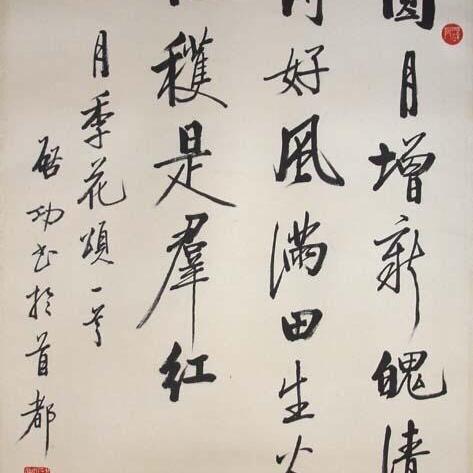 圓月增新魄清
好風滿田生
穫是羣紅
月季花頌一
啓功書於首都